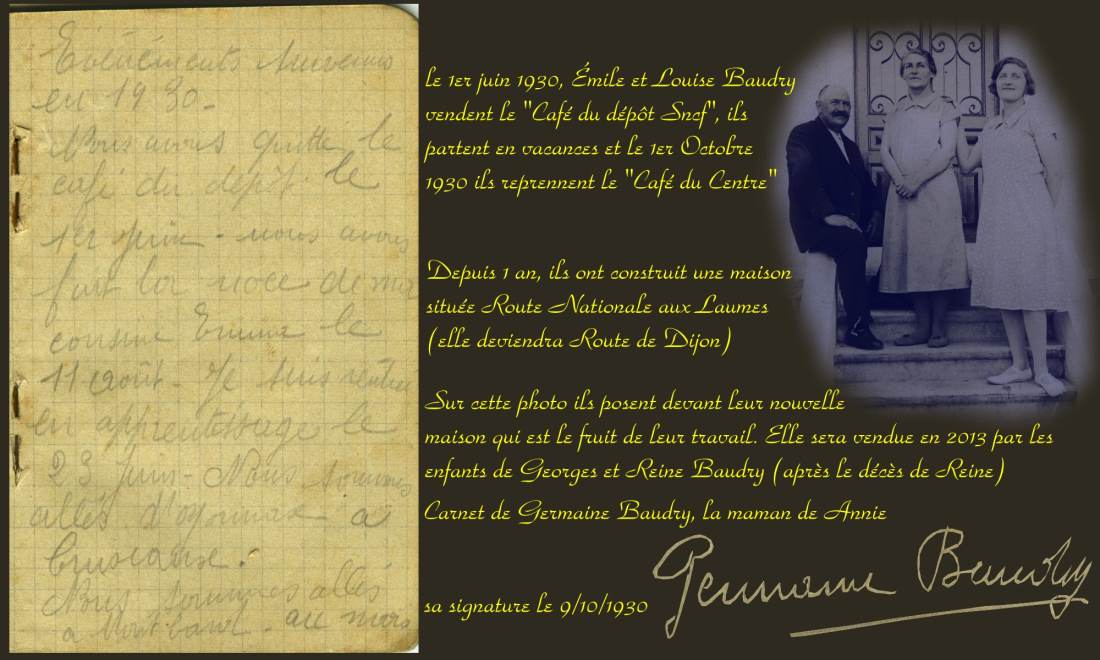 Evénements survenus
en 1930.
Nous avons quitté le
café du dépôt le
1er juin - nous avons
fait la noce de ma
cousine Emma le
11 août - Je suis rentrée
en apprentissage le
23 juin - Nous sommes
allés Oyonnax à

Nous sommes allés
a Montbard - au mois
le 1er juin 1930, Émile et Louise Baudry
vendent le "Café du dépôt Sncf", ils
partent en vacances et le 1er Octobre
1930 ils reprennent le "Café du Centre"
Depuis 1 an, ils ont construit une maison
située Route Nationale aux Laumes
(elle deviendra Route de Dijon)
Sur cette photo ils posent devant leur nouvelle
maison qui est le fruit de leur travail. Elle sera vendue en 2013 par les
enfants de Georges et Reine Baudry (après le décès de Reine)
Carnet de Germaine Baudry, la maman de Annie
sa signature le 9/10/1930
Germaine Baudry